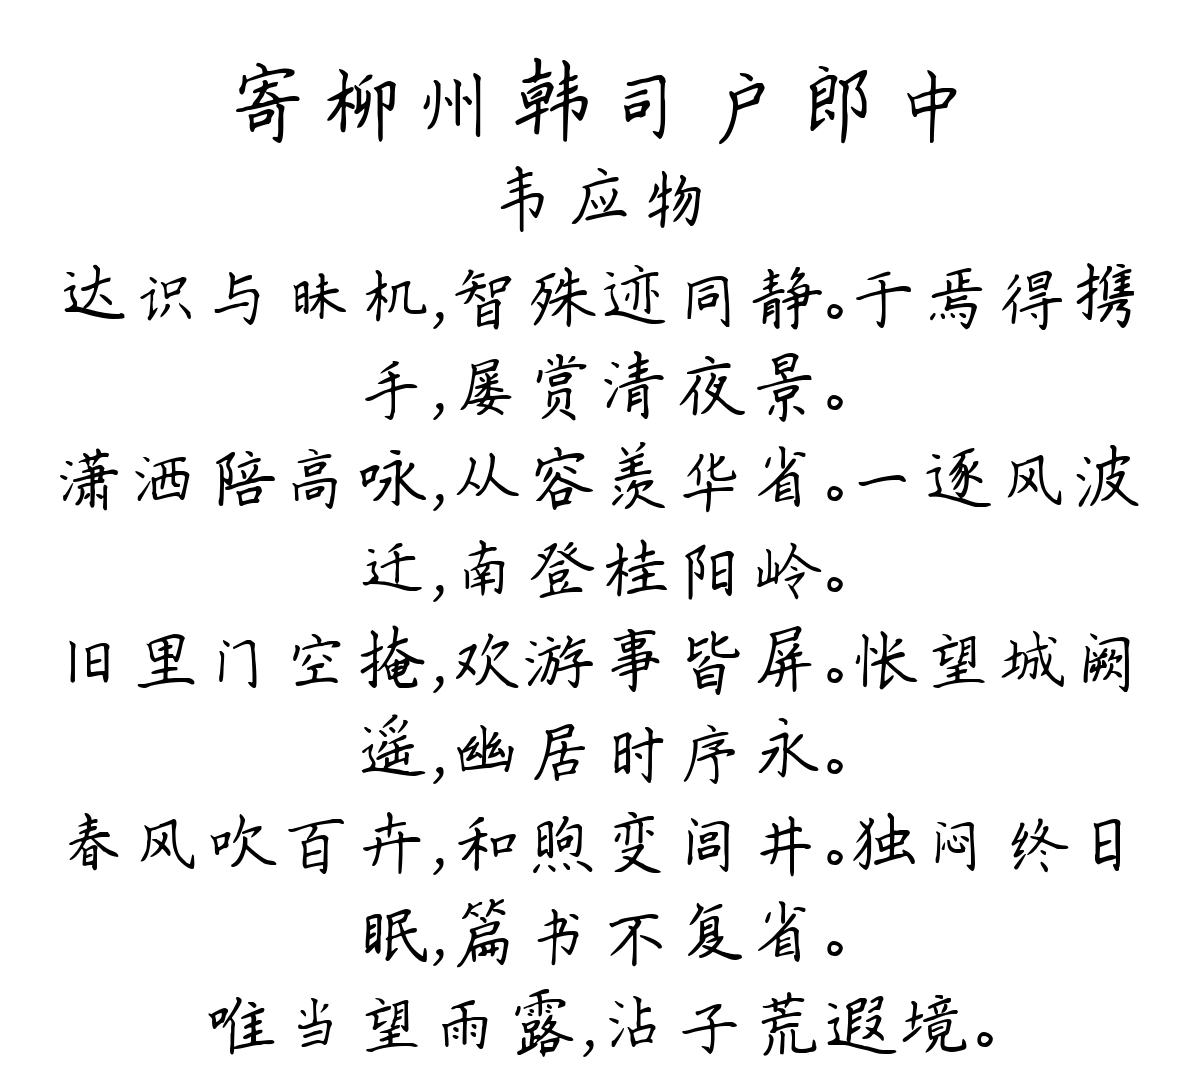 寄柳州韩司户郎中
韦应物
达识与昧机,智殊迹同静。于焉得携
手,屡赏清夜景。
潇洒陪高咏,从容羡华省。一逐风波
迁,南登桂阳岭。
旧里门空掩,欢游事皆屏。怅望城阙
遥,幽居时序永。
春风吹百卉,和煦变闾井。独闷终日
眠,篇书不复省。
唯当望雨露,沾子荒遐境。